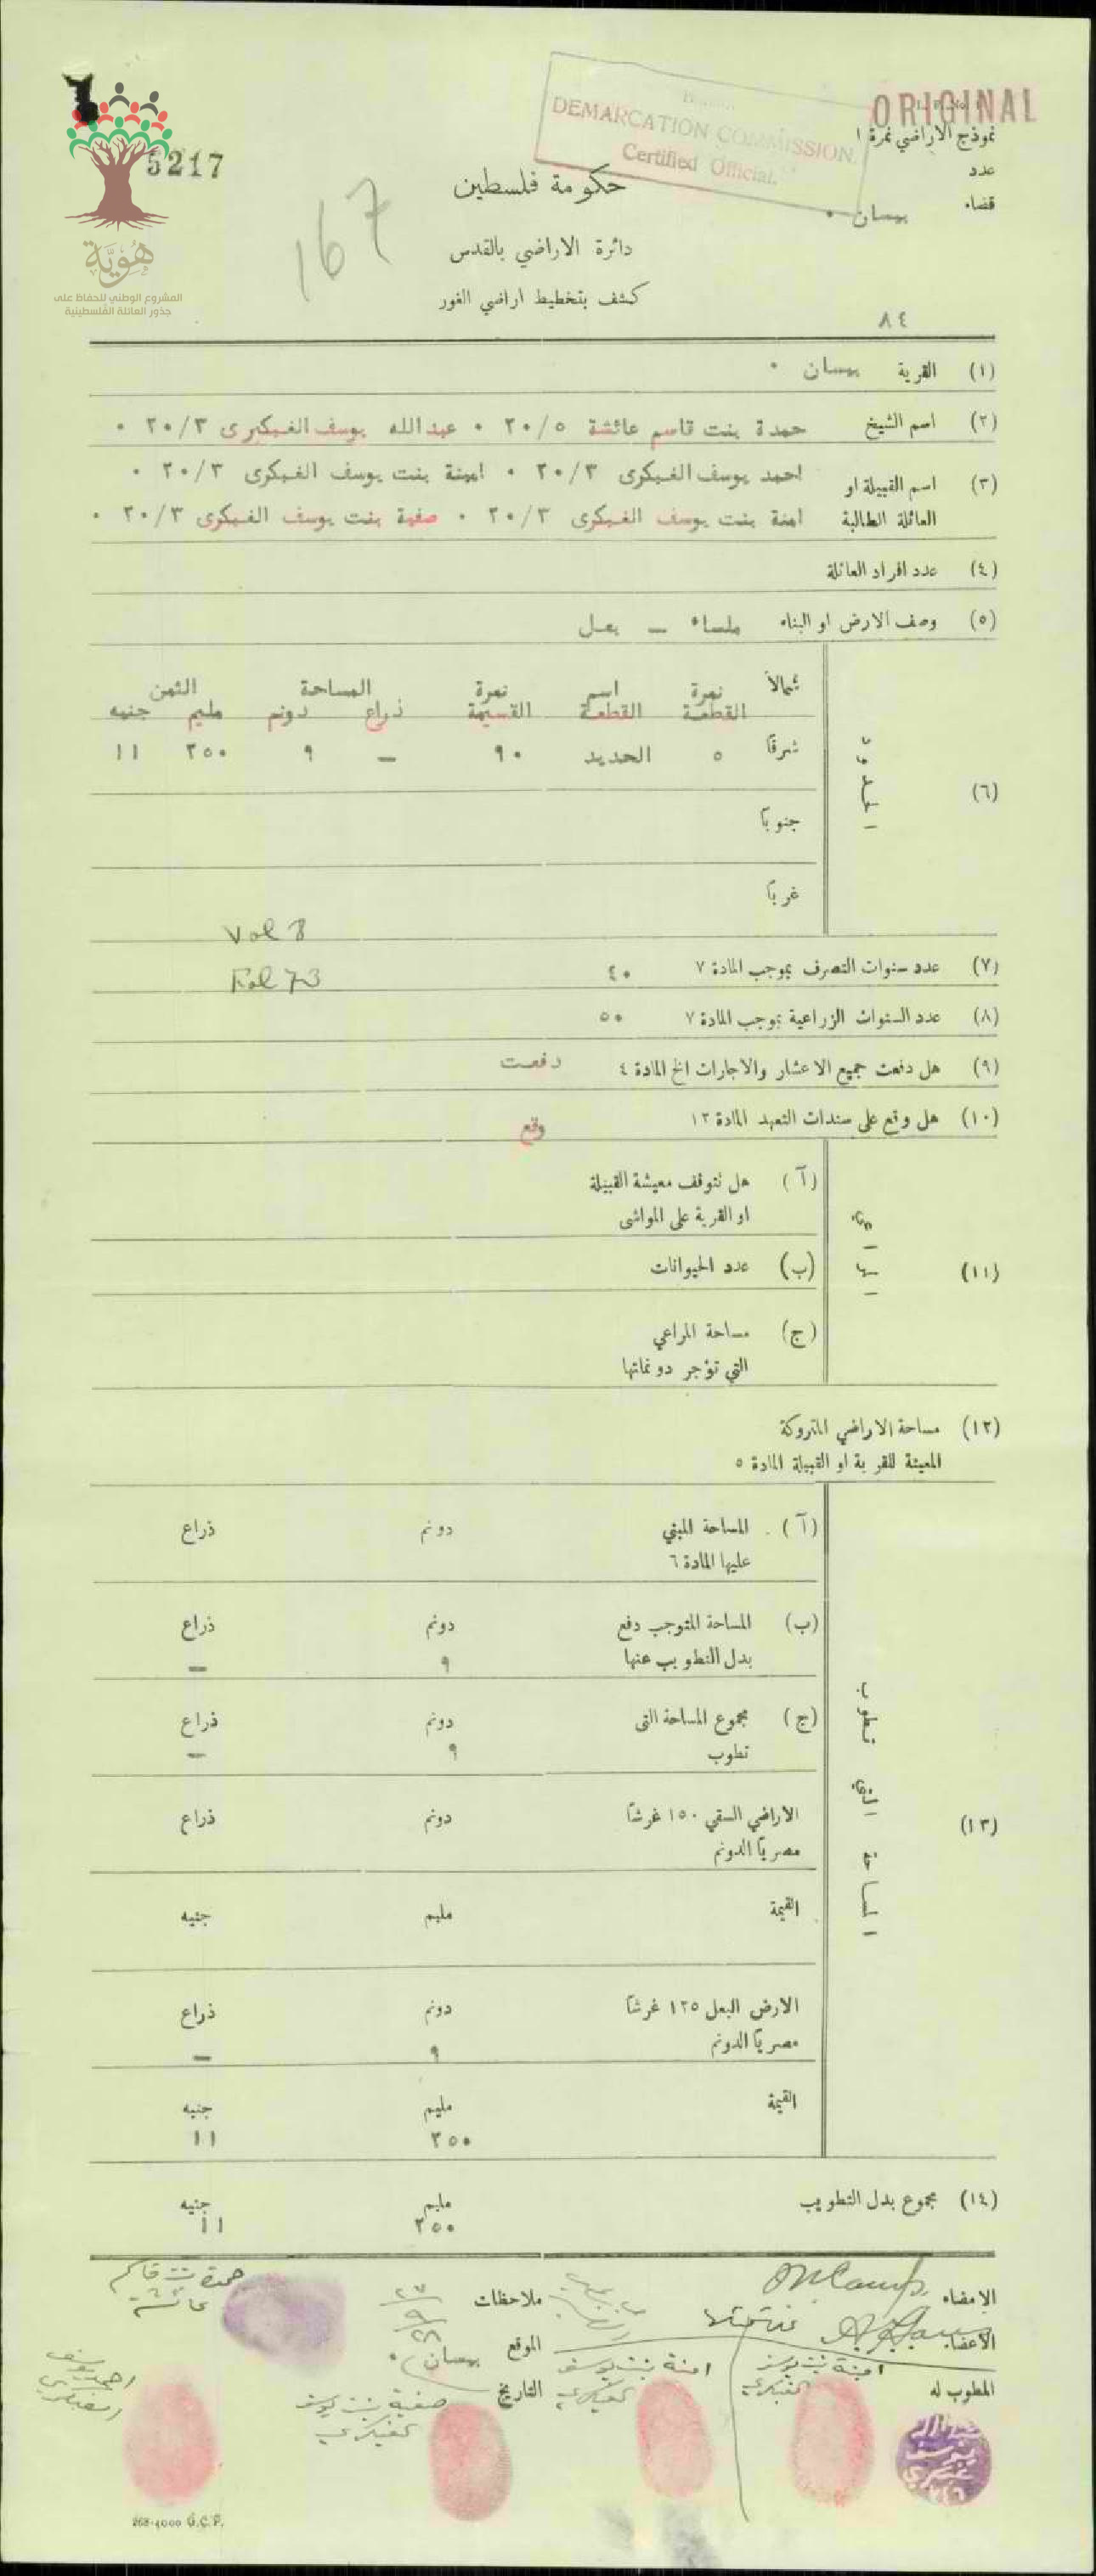 ORIGINAL
DEMARCATION COMMISSION.
Certified Official.
نموذج الاراضي نمرة ١
عدد
قضاء بيسان •
5217
167
حكومة فلسطين
دائرة الاراضي بالقدس
كشف بتخطيط اراضي الغور
٨٤
هُويَّة
المشروع الوطني للحفاظ على
جذور العائلة الفلسطينية
(١) القرية بيسان •
(٢) اسم الشيخ حمدة بنت قاسم عائشة ٢٠/٥ • عبدالله يوسف الغبكبرى ٢٠/٣ •
(٣) اسم القبيلة او احمد يوسف الغبكرى ٢٠/٣ • امينة بنت يوسف الغبكرى ٢٠/٣ •
العائلة الطالبة امنة بنت يوسف الغبكرى ٢٠/٣ • صفية بنت يوسف الغبكرى ٢٠/٣ •
(٤) عدد افراد العائلة
(٥) وصف الارض او البناء ملساء — بعل
(٦) الحدود
شمالاً نمرة القطعة اسم القطعة نمرة القسيمة المساحة ذراع دونم الثمن مليم جنيه
شرقاً ٥ الحديد ٩٠ — ٩ ٢٥٠ ١١
جنوباً
غرباً
Vol 8
Fol 73
(٧) عدد سنوات التصرف بموجب المادة ٧ ٤٠
(٨) عدد السنوات الزراعية بموجب المادة ٧ ٥٠
(٩) هل دفعت جميع الاعشار والاجارات الخ المادة ٤ دفعت
(١٠) هل وقع على سندات التعهد المادة ١٣ وقع
(١١)
(آ) هل تتوقف معيشة القبيلة
او القرية على المواشى
(ب) عدد الحيوانات
(ج) مساحة المراعي
التي تؤجر دونماتها
(١٢) مساحة الاراضي المتروكة
المعينة للقرية او القبيلة المادة ٥
(١٣)
(آ) المساحة المبني دونم ذراع
عليها المادة ٦
(ب) المساحة المتوجب دفع دونم ذراع
بدل التطويب عنها ٩ —
(ج) مجموع المساحة التى دونم ذراع
تطوب ٩ —
الاراضي السقي ١٥٠ غرشاً دونم ذراع
مصرياً الدونم
القيمة مليم جنيه
الارض البعل ١٢٥ غرشاً دونم ذراع
مصرياً الدونم ٩ —
القيمة مليم جنيه
٢٥٠ ١١
(١٤) مجموع بدل التطويب مليم جنيه
٢٥٠ ١١
الامضاء
ملاحظات
حمدة بنت قاسم
عائشة
الاعضاء
الموقع بيسان •
المطوب له
امينة بنت يوسف
امنة بنت يوسف
التاريخ
صفية بنت يوسف
احمد يوسف
268-4000 G.C.P.